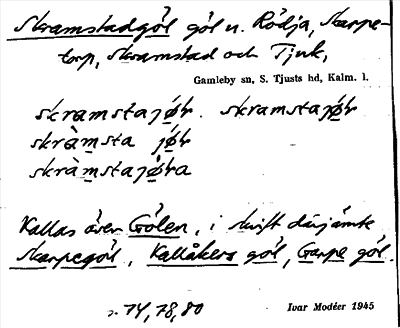 Skramstadgöl göl u. Rödja, Skarpe-
torp, Skramstad och Tjuk,
Gamleby sn, S. Tjusts hd, Kalm. l.
skramstajøɫ. skramstajøɫ
skràmsta jøɫ
skràmstajøɫa
Kallas även Gölen, i skrift därjämte
Skarpegöl, Kallåkers göl, Garpe göl.
74, 78, 80
Ivar Modéer 1945